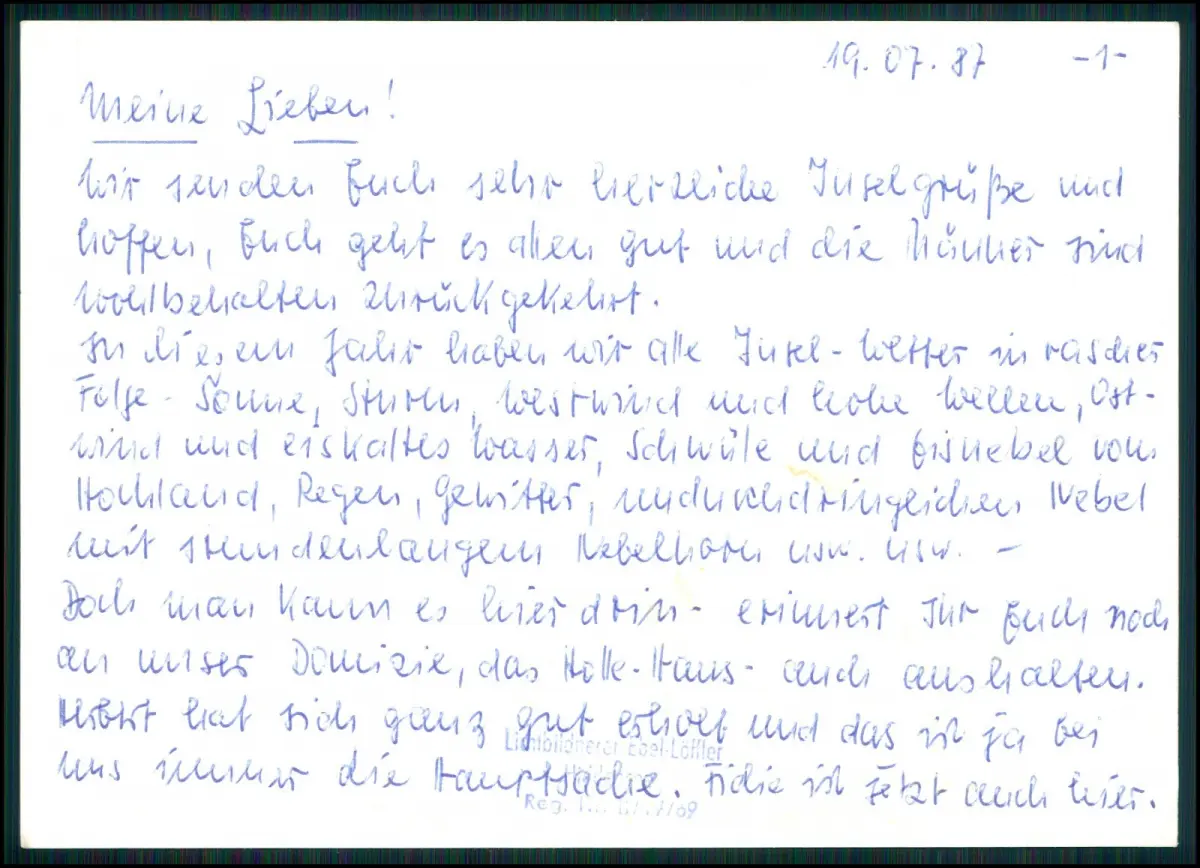 19.07.87 -1-
Meine Lieben!
Wir senden Euch sehr herzliche Inselgrüße und
hoffen, Euch geht es allen gut und die Männer sind
wohlbehalten zurückgekehrt.
In diesem Jahr haben wir alle Insel-Wetter in rascher
Folge - Sonne, Sturm, Westwind und hohe Wellen, Ost-
wind und eiskaltes Wasser, Schwüle und Eisnebel vom
Hochland, Regen, Gewitter, undurchdringlichen Nebel
mit stundenlangem Nebelhorn usw. usw. -
Doch man kann es hier drin - erinnert Ihr Euch noch
an unser Domizil, das Holle-Haus - auch aushalten.
Herbert hat sich ganz gut erholt und das ist ja bei
Lichtbildnerei Ebel-Löffler
uns immer die Hauptsache. Fidie ist jetzt auch hier.
Reg.